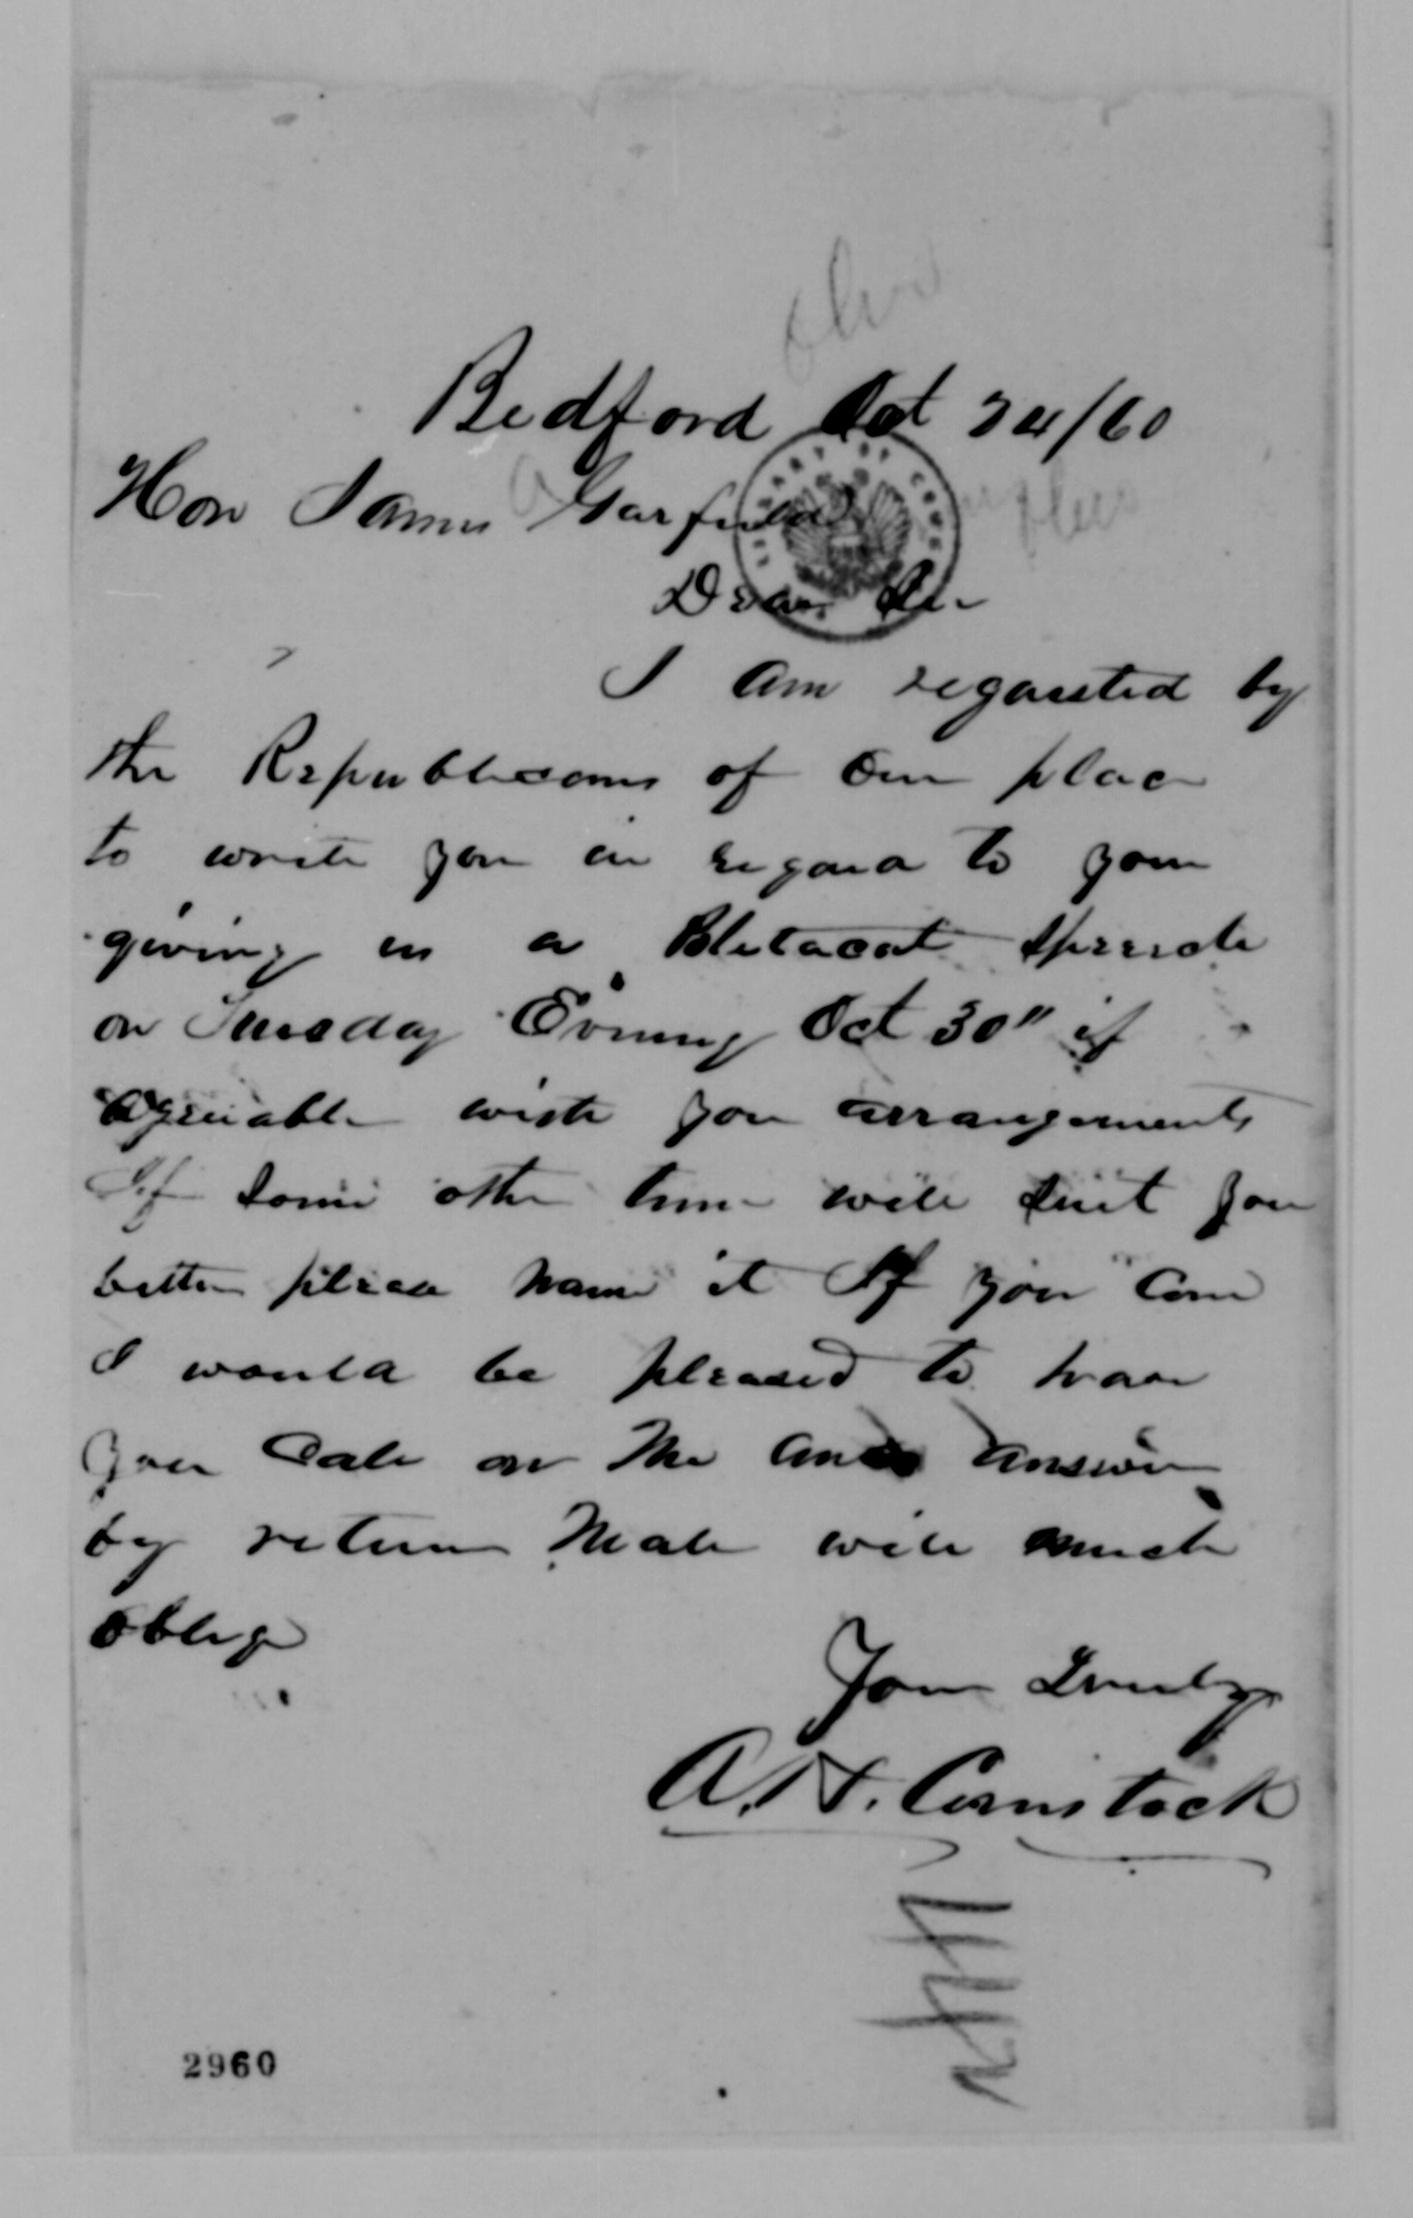 Ohio
Bedford Oct 24/60
Hon James A Garfield
Dear Sir
I am requested by
the Republicans of our place
to write you in regard to your
giving us a speech
on Tuesday Evening Oct 30" if
agreeable with you arrangements
If some other time will suit you
better please name it If you come
I would be pleased to have
you call on me and answer
by return Male will much
oblige
Your Truly
A. H. Comstock
2960